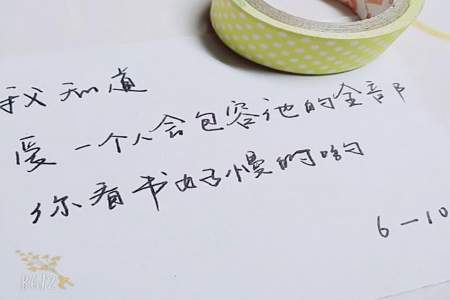 我知道
爱一个人会包容他的全部
你看书好慢的哟
6-10
R6/2